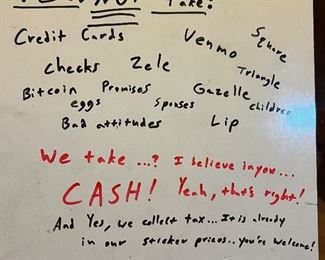 NOT Take:
Credit Cards Venmo Square
Checks Zele Triangle
Bitcoin Promises Gazelle
eggs Spouses children
Bad attitudes Lip
We take...? I believe in you...
CASH! Yeah, that's right!
And Yes, we collect tax... It is already
in our sticker prices.. you're welcome!